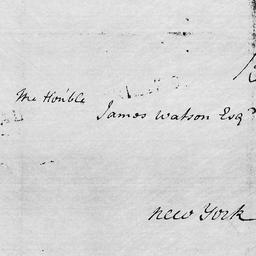 The Hon'ble
James Watson Esqr
New York